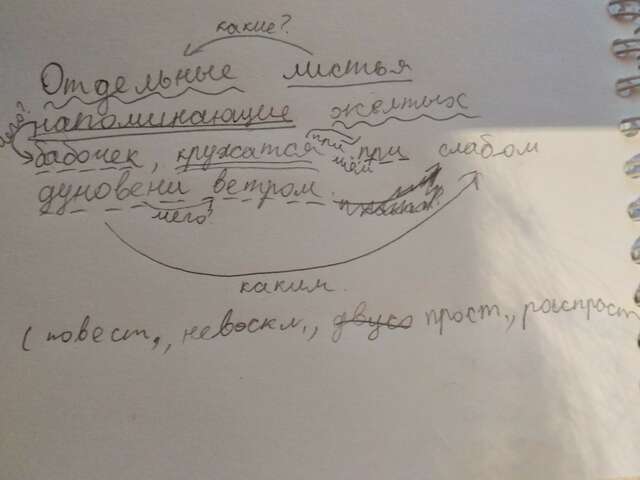 какие?
Отдельные листья
напоминающие жёлтых
чего?
бабочек, кружатся при слабом
при
чём
дуновени ветром.
чего?
каким.
(повест., невоскл., двусо прост., распрост